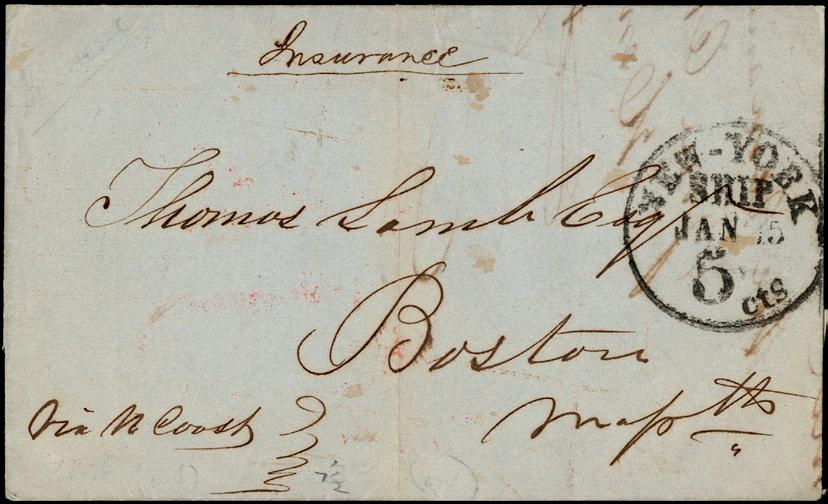 Insurance
Thomas Lamb Esqr
Boston
Massts
via N Coast
NEW-YORK
SHIP
JAN 15
5
cts